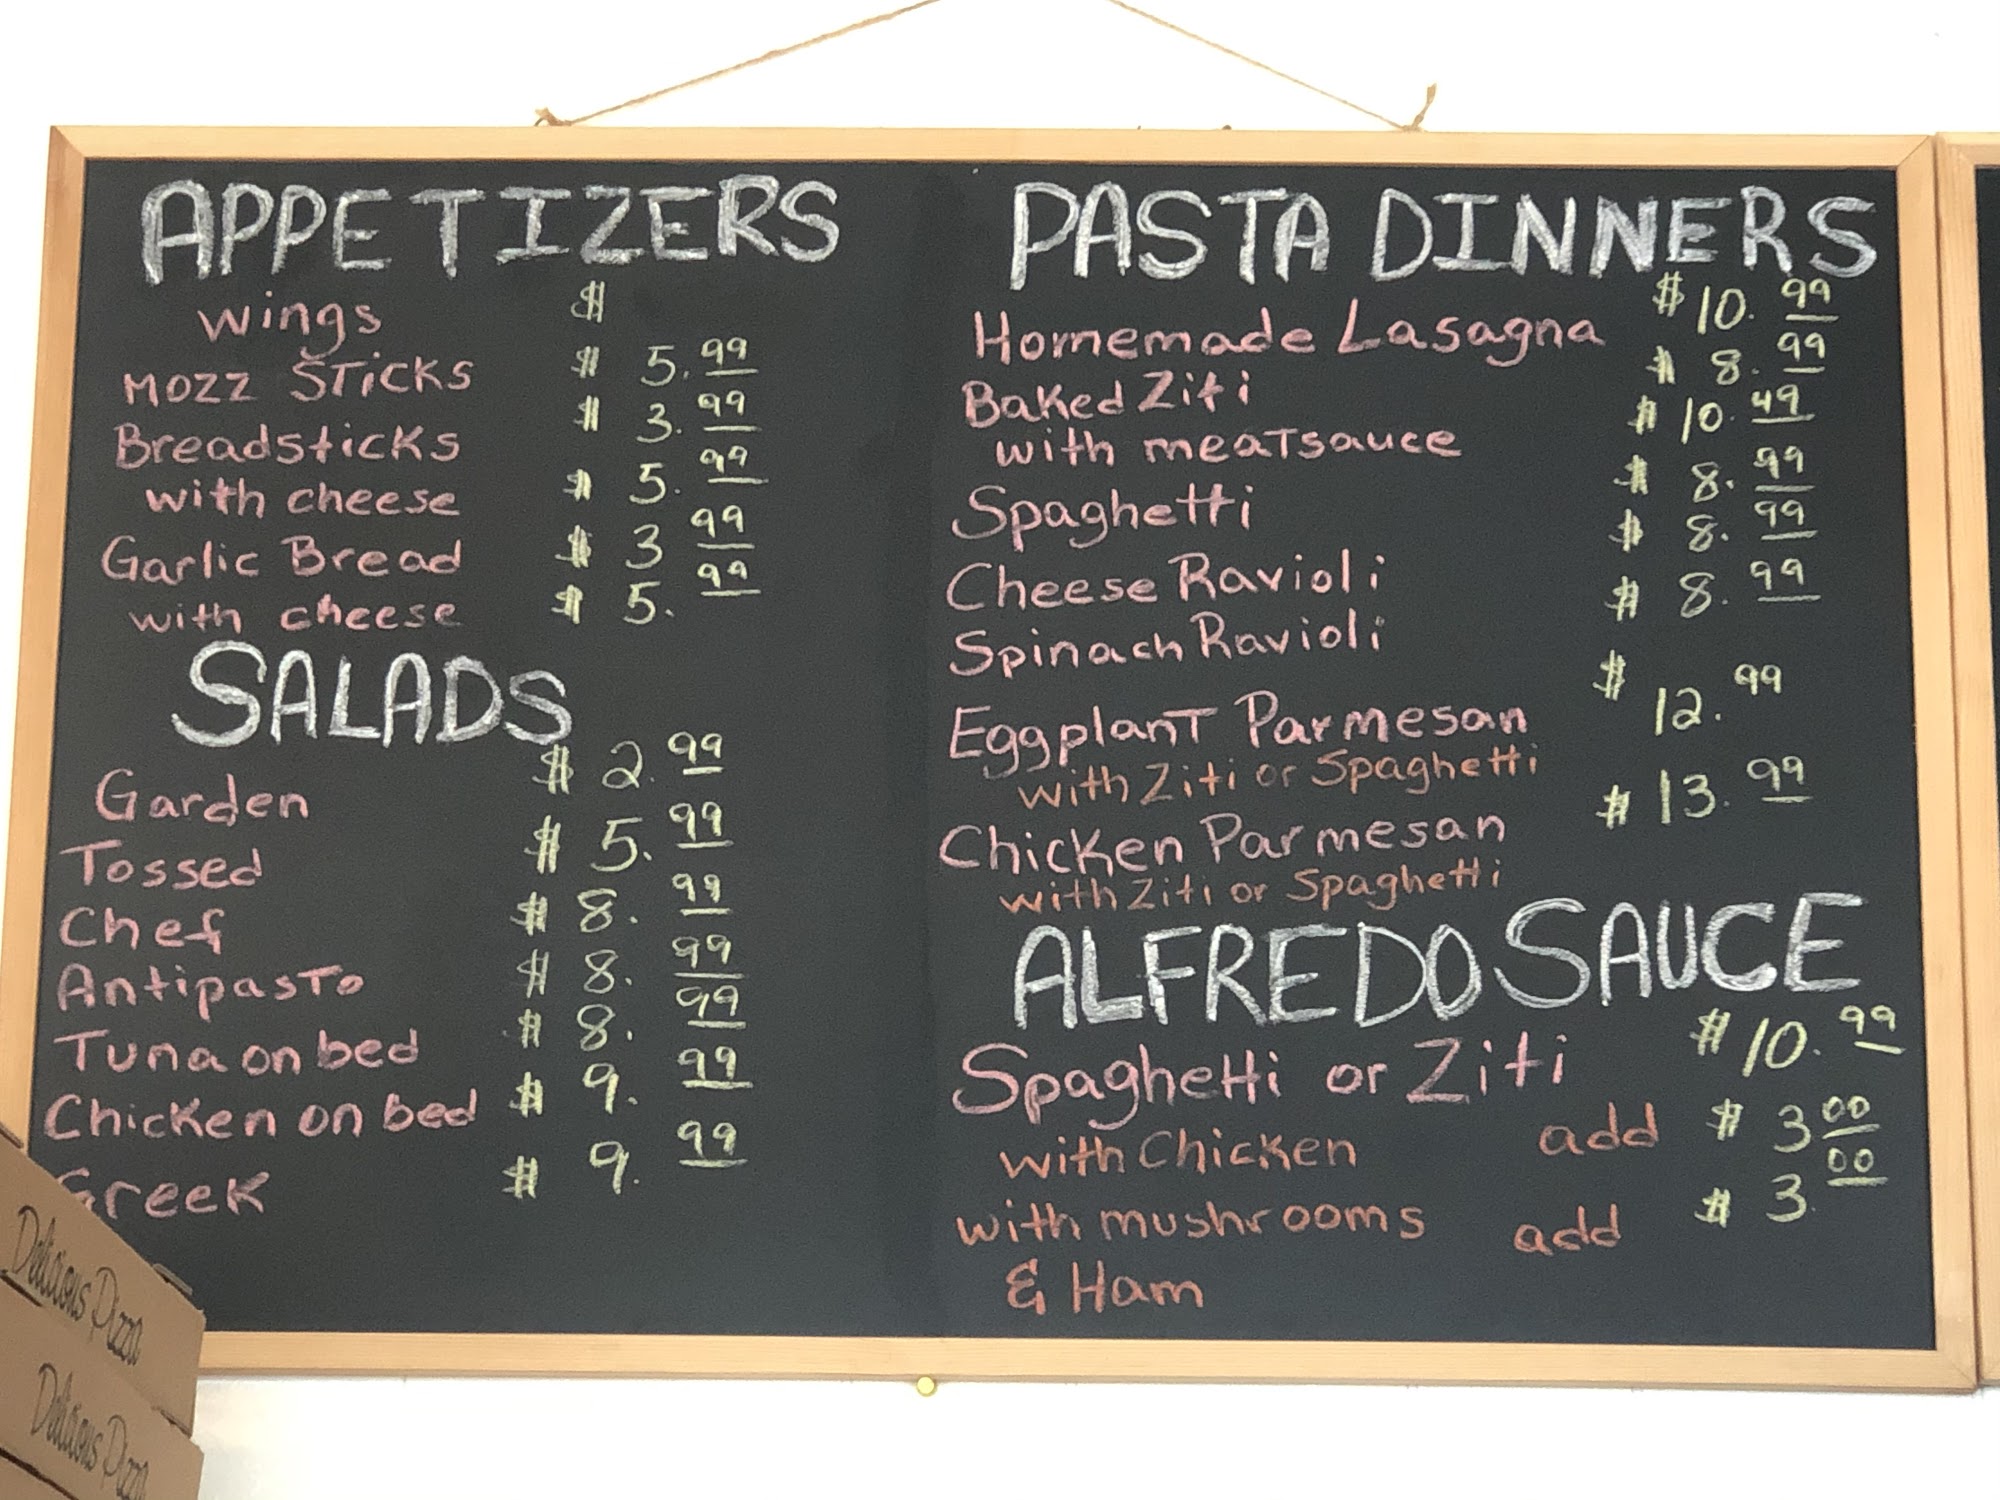 APPETIZERS
wings $
MOZZ STICKS $ 5.99
Breadsticks $ 3.99
with cheese $ 5.99
Garlic Bread $ 3 99
with cheese $ 5.99
SALADS
Garden $ 2.99
Tossed $ 5.99
Chef $ 8.99
Antipasto $ 8.99
Tuna on bed $ 8.99
Chicken on bed $ 9.99
Greek $ 9.99
PASTA DINNERS
Homemade Lasagna $ 10.99
Baked Ziti $ 8.99
with meatsauce $ 10.49
Spaghetti $ 8.99
Cheese Ravioli $ 8.99
Spinach Ravioli $ 8.99
Eggplant Parmesan $ 12.99
with Ziti or Spaghetti
Chicken Parmesan $ 13.99
with Ziti or Spaghetti
ALFREDO SAUCE
Spaghetti or Ziti $ 10.99
with Chicken add $ 3 00
with mushrooms add $ 3 00
& Ham
Delicious Pizza
Delicious Pizza